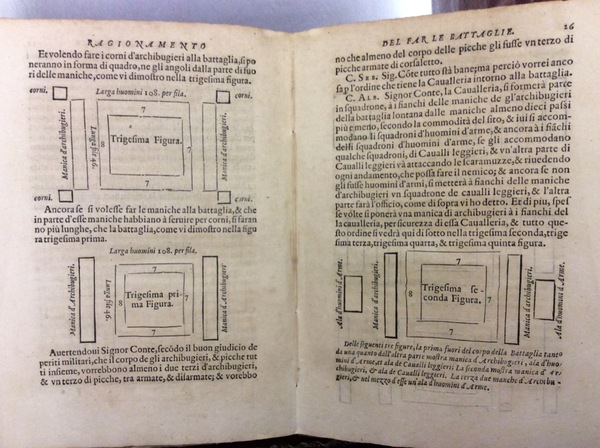 RAGIONAMENTO
Et volendo fare i corni d'archibugieri alla battaglia, si po
neranno in forma di quadro, ne gli angoli dalla parte di fuo
ri delle maniche, come vi dimostro nella trigesima figura.
corni.
Larga huomini 108. per fila.
corni.
7
Manica d'archibugieri.
Lunga file 46.
8
Trigesima Figura.
7
Manica d'archibugieri.
7
corni.
corni.
Ancora se si volesse far le maniche alla battaglia, & che
in parte d'esse maniche habbiano à seruire per corni, si faran
no più lunghe, che la battaglia, come vi dimostro nella figu
ra trigesima prima.
Larga huomini 108. per fila.
7
Manica d'Archibugieri.
Lunga file 46.
8
Trigesima pri
ma Figura.
7
Manica d'Archibugieri
7
Auertendoui Signor Conte, secōdo il buon giudicio de
periti militari, che il corpo de gli archibugieri, & picche tut
ti insieme, vorrebbono almeno i due terzi d'archibugieri,
& vn terzo di picche, tra armate, & disarmate; & vorebbo
DEL FAR LE BATTAGLIE.
26
no che almeno del corpo delle picche gli fusse vn terzo di
picche armate di corsaletto.
C. SER. Sig. Cōte tutto stà bene, ma perciò vorrei anco
sap l'ordine che tiene la Caualleria intorno alla battaglia.
C. ALB. Signor Conte, la Caualleria, si formerà parte
in squadrone, à i fianchi delle maniche de gl'archibugieri
della battaglia lontana dalle maniche almeno dieci passi
più e meno, secondo la commodità del sito, & iui si accom
modano li squadroni d'huomini d'arme, & ancora à i fiāchi
delli squadroni d'huomini d'arme, se gli accommodano
qualche squadroni, di Caualli leggieri, & vn'altra parte di
Caualli leggieri và attaccando le scaramuzze, & riuedendo
ogni andamento, che possa far il nemico; & ancora se non
gli fusse huomini d'armi, si metterà à i fianchi delle maniche
d'archibugieri vn squadrone de caualli leggieri, & l'altra
parte farà l'officio, come di sopra vi hò detto. Et di piu, spes
se volte si ponerà vna manica di archibugieri à i fianchi del
la caualleria, per sicurezza di essa Caualleria, & tutto que-
sto ordine si vedrà qui di sotto nella trigesima seconda, trige
sima terza, trigesima quarta, & trigesima quinta figura.
7
Ala d'huomini d'Arme.
Manica d'Archibugieri.
8
Trigesima se
conda Figura.
7
Manica d'Archibugieri.
Ala d'huomini d'Arme.
7
Delle seguenti tre figure, la prima fuori del corpo della Battaglia tanto
da vna quanto dall'altra parte mostra manica d'Archibugieri, ala d'huo
mini d'Arme, et ala de Caualli leggieri: La seconda mostra manica d'Ar
chibugieri, & ala de Caualli leggieri. La terza due maniche d'Archibu-
gieri, & nel mezzo d'esse vn'ala d'huomini d'Arme.